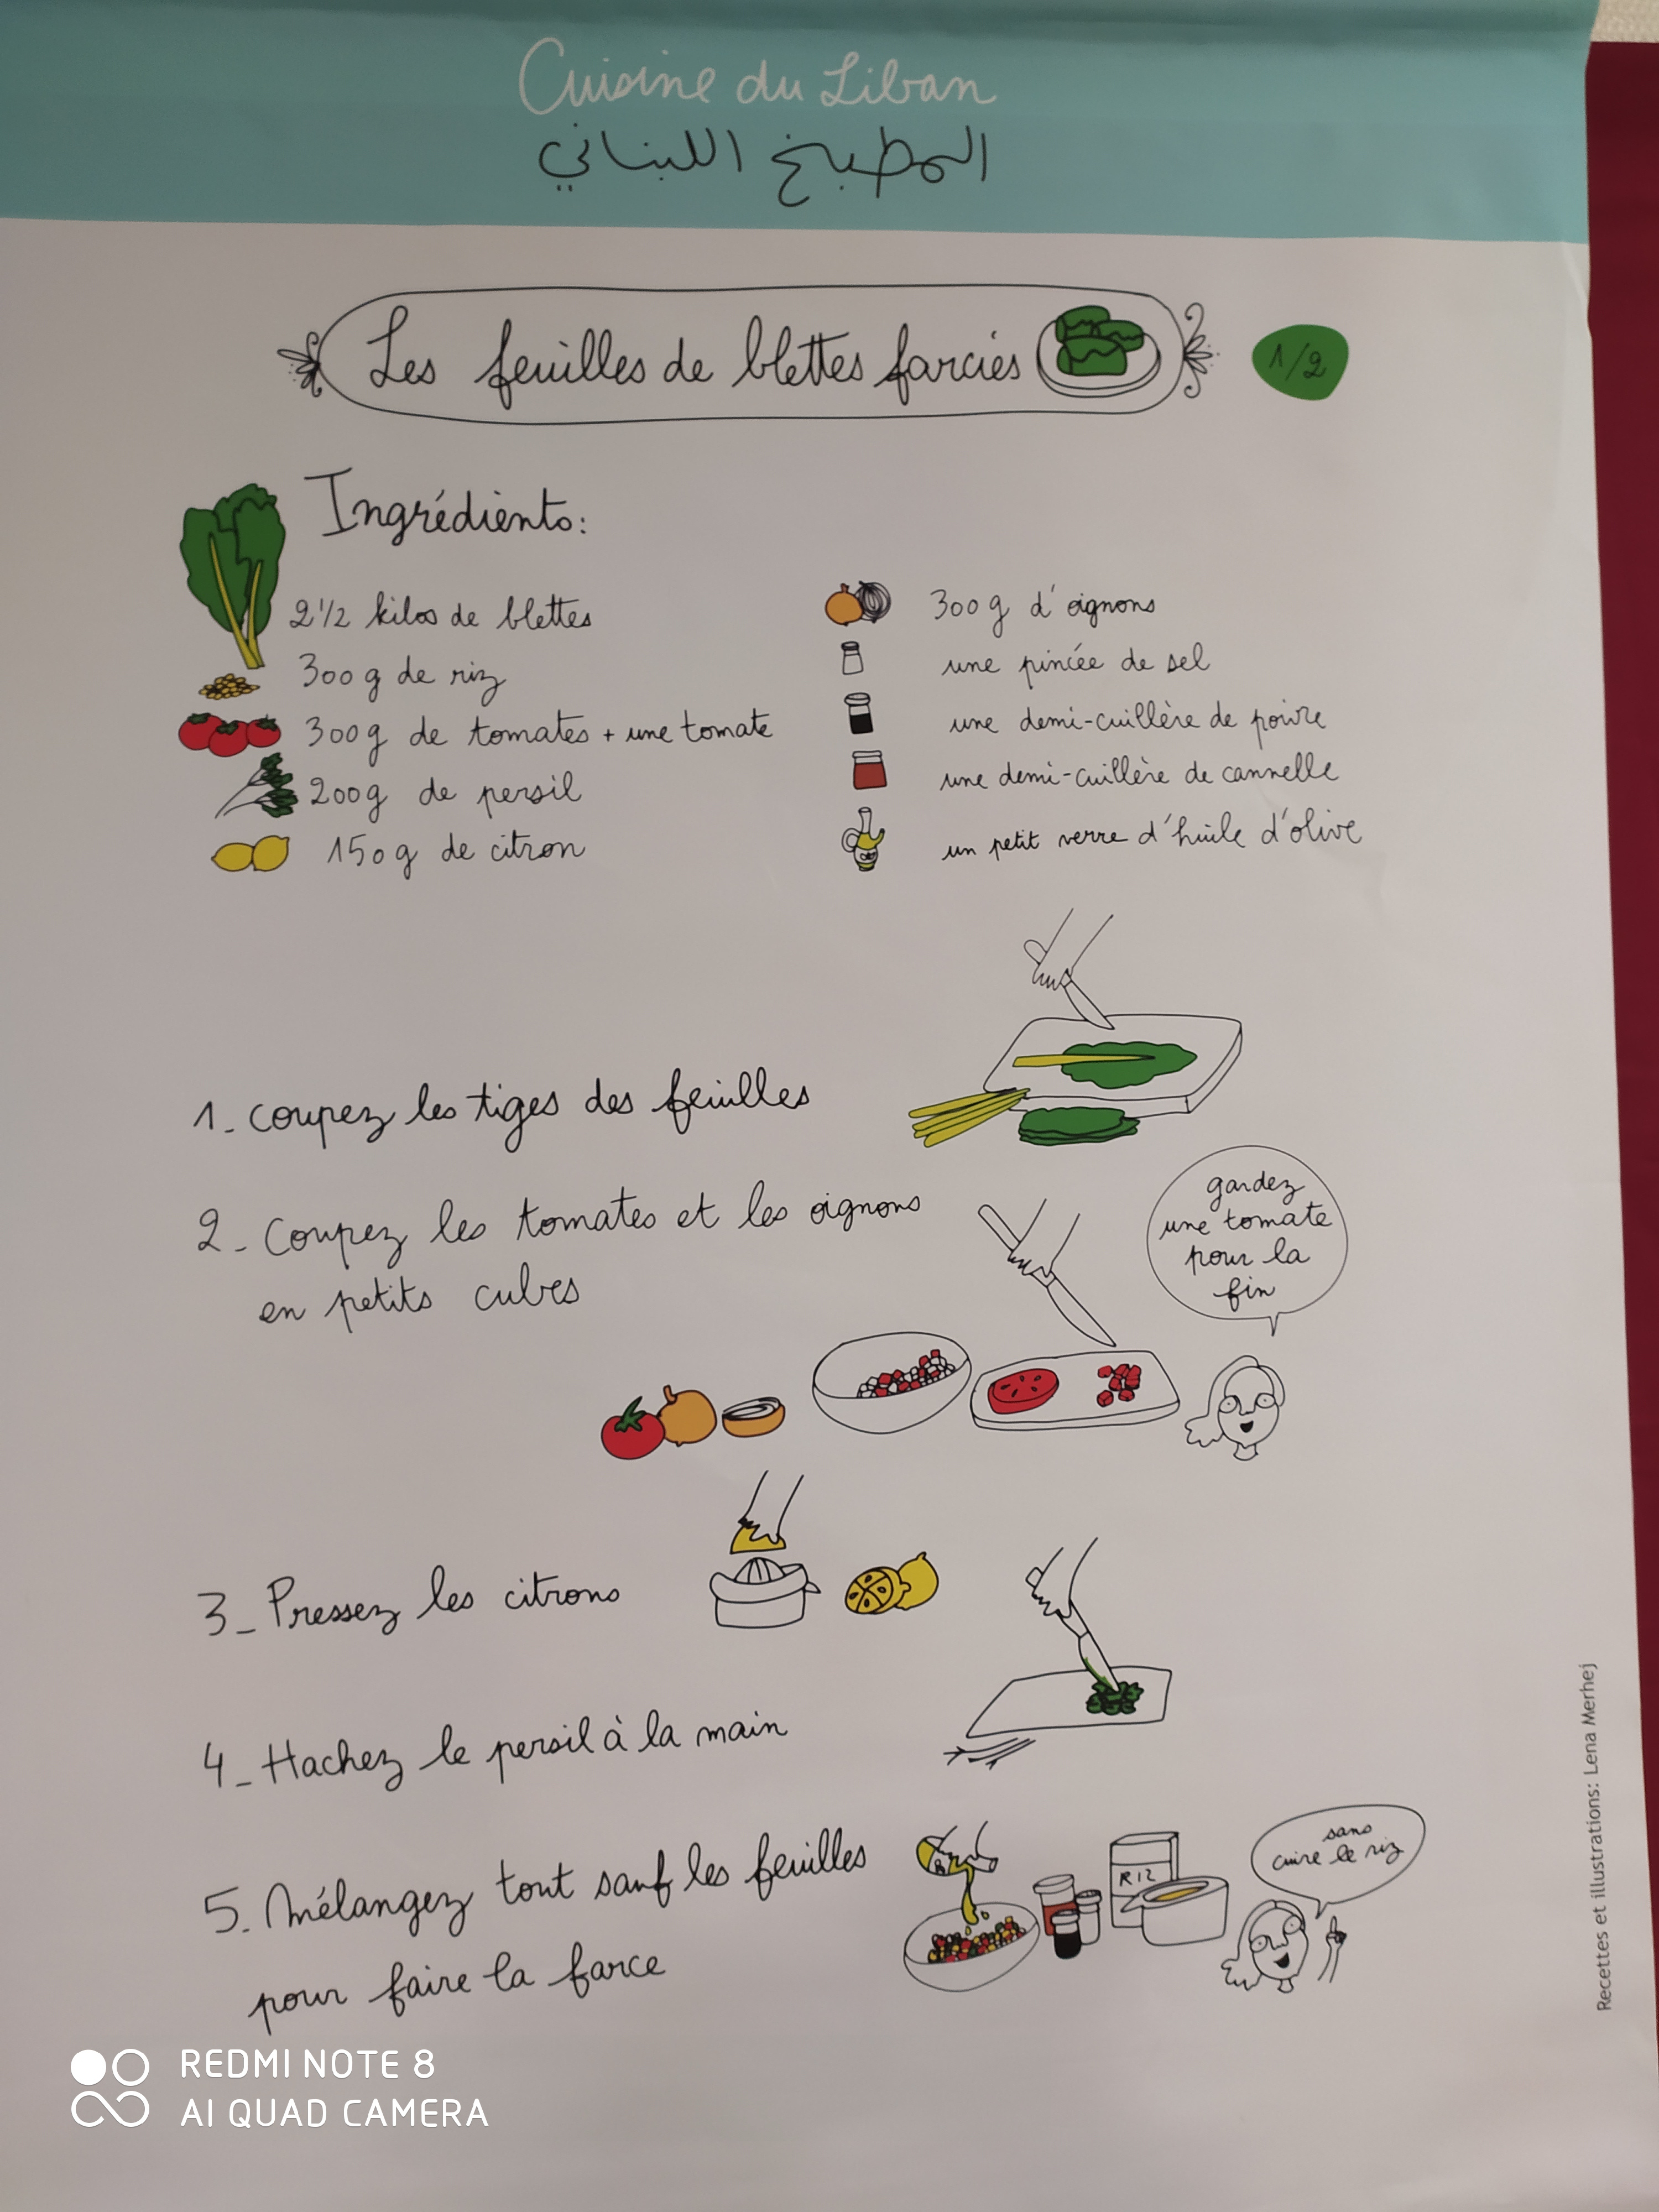 Cuisine du Liban
المطبخ اللبناني
Les feuilles de blettes farcies
1/2
Ingrédients:
2 1/2 kilos de blettes
300 g de riz
300g de tomates + une tomate
200g de persil
150g de citron
300 g d'oignons
une pincée de sel
une demi-cuillère de poivre
une demi-cuillère de cannelle
un petit verre d'huile d'olive
1_ coupez les tiges des feuilles
2_ Coupez les tomates et les oignons
en petits cubes
gardez
une tomate
pour la
fin
3_ Pressez les citrons
4_ Hachez le persil à la main
5_ Mélangez tout sauf les feuilles
pour faire la farce
RIZ
sans
cuire le riz
Recettes et illustrations: Lena Merhej
REDMI NOTE 8
AI QUAD CAMERA